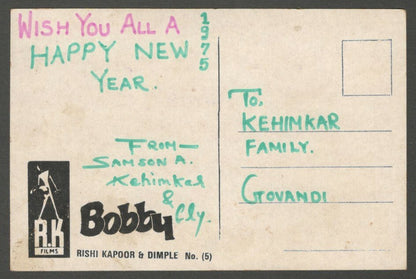 WISH YOU ALL A
HAPPY NEW
YEAR.
1975
FROM—
SAMSON A.
Kehimkar
&
Elly.
TO,
KEHIMKAR
FAMILY.
GOVANDI
R.K
FILMS
Bobby
RISHI KAPOOR & DIMPLE No. (5)